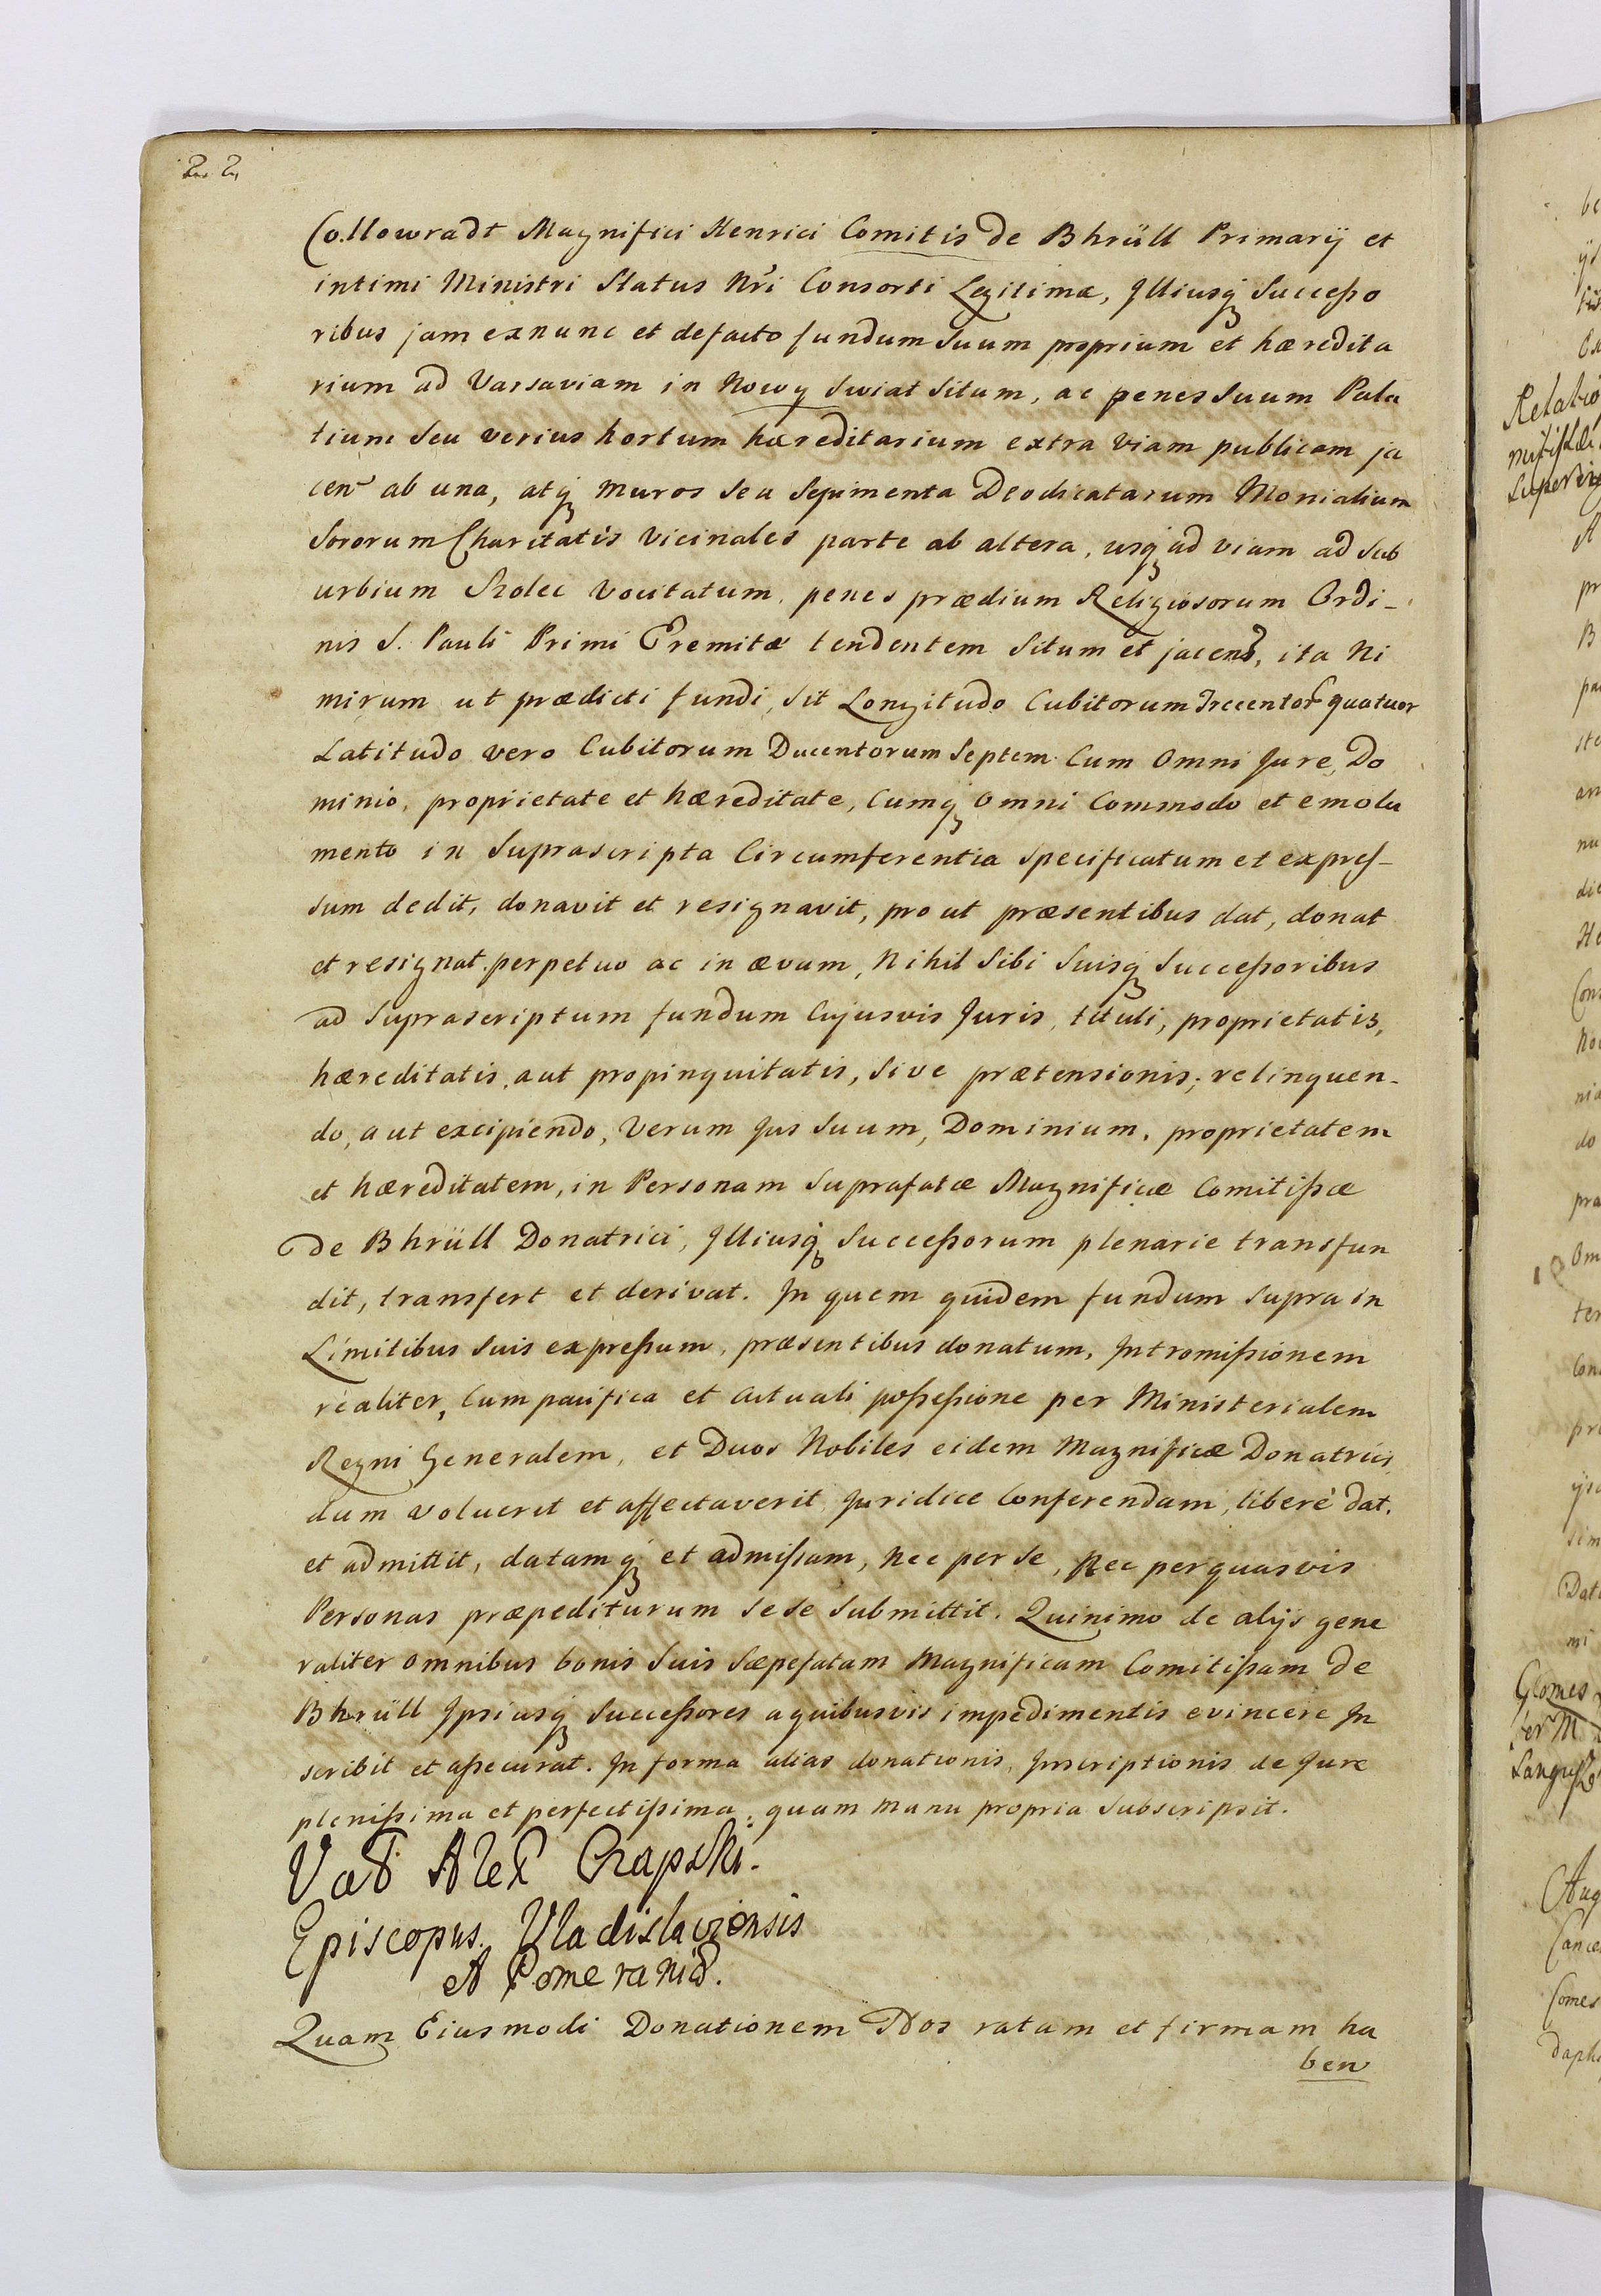 22
Collowradt Magnifici Henrici Comitis de Bhrüll Primarij et
intimi Ministri Status Nri Consorti Legitimæ, Illiusq Succeßo
ribus jam exnunc et defacto fundum Suum proprium et hæredita
rium ad Varsaviam in Nowy Swiat Situm, ac penes Suum Pala
tium Seu verius hortum hæreditarium extra Viam publicam ja
cen ab una, atq muros Seu Sepimenta Deodicatarum Monialium
Sororum Charitatis Vicinales parte ab altera, usq ad viam ad Sub
urbium Szolec Vocitatum, penes prædium Religiosorum Ordi-
nis S. Pauli Primi Eremitæ tendentem Situm et jacens, ita Ni
mirum ut prædicti fundi, Sit Longitudo Cubitorum Trecentor quatuor
Latitudo vero Cubitorum Ducentorum Septem. Cum Omni Jure, Do
minio, proprietate et hæreditate, Cumq Omni Commodo et emolu
mento in Suprascripta Circumferentia Specificatum et expres-
sum dedit, donavit et resignavit, pro ut præsentibus dat, donat
et resignat. perpetuo ac in ævum, Nihil Sibi Suisq Succeßoribus
ad Suprascriptum fundum Cujusvis Juris, tituli, proprietatis,
hæreditatis, aut propinquitatis, Sive prætensionis; relinquen-
do, aut excipiendo, Verum Jus Suum, Dominium, proprietatem
et hæreditatem, in Personam Suprafatæ Magnificæ Comitißæ
de Bhrüll Donatrici, Illiusq Succeßorum plenarie transfun
dit, transfert et derivat. In quem quidem fundum Supra in
Limitibus Suis expreßum, præsentibus donatum, Intromißionem
realiter, Cum pacifica et Actuali poßeßione per Ministerialem
Regni Generalem, et Duos Nobiles eidem Magnificæ Donatrici,
dum voluerit et affectaverit Juridice Conferendam, liberè dat,
et admittit, datamq et admißam, Nec per Se, Nec per quasvis
Personas præpediturum Sese Submittit. Quinimo de alijs gene
raliter omnibus bonis Suis Sæpefatam Magnificam Comitißam de
Bhrüll Ipsiusq Succeßores a quibusvis impedimentis evincere In
scribit et aßecurat. In forma alias donationis, Inscriptionis de Jure
plenißima et perfectißima, quam manu propria Subscripsit.
Val Alex Czapski.
Episcopus. Vladislaviensis
et Pomeraniæ.
Quam Eiusmodi Donationem Nos ratam et firmam ha
ben